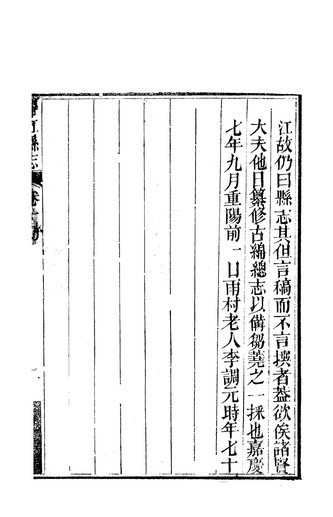 江故仍曰縣志其但言稿而不言撰者葢欲俟諸賢
大夫他日纂修古綿總志以備芻蕘之一採也嘉慶
七年九月重陽前一日雨村老人李調元時年七十
江縣志
卷